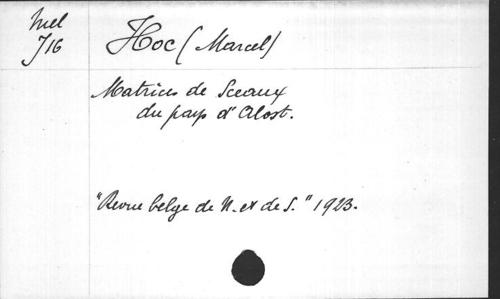 Mel
J16
Hoc (Marcel)
Matrices de Sceaux
du pays d'Alost.
"Revue belge de N. et de S." 1923.